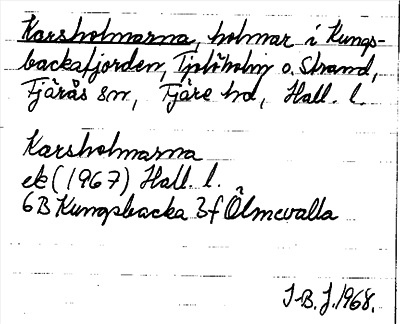 Karsholmarna, holmar i Kungs-
backafjorden, Tjolöholm o. Strand,
Fjärås sn, Fjäre hd, Hall. l.
Karsholmarna
ek (1967) Hall. l.
6B Kungsbacka 3f Ölmevalla
I.B.J. 1968.